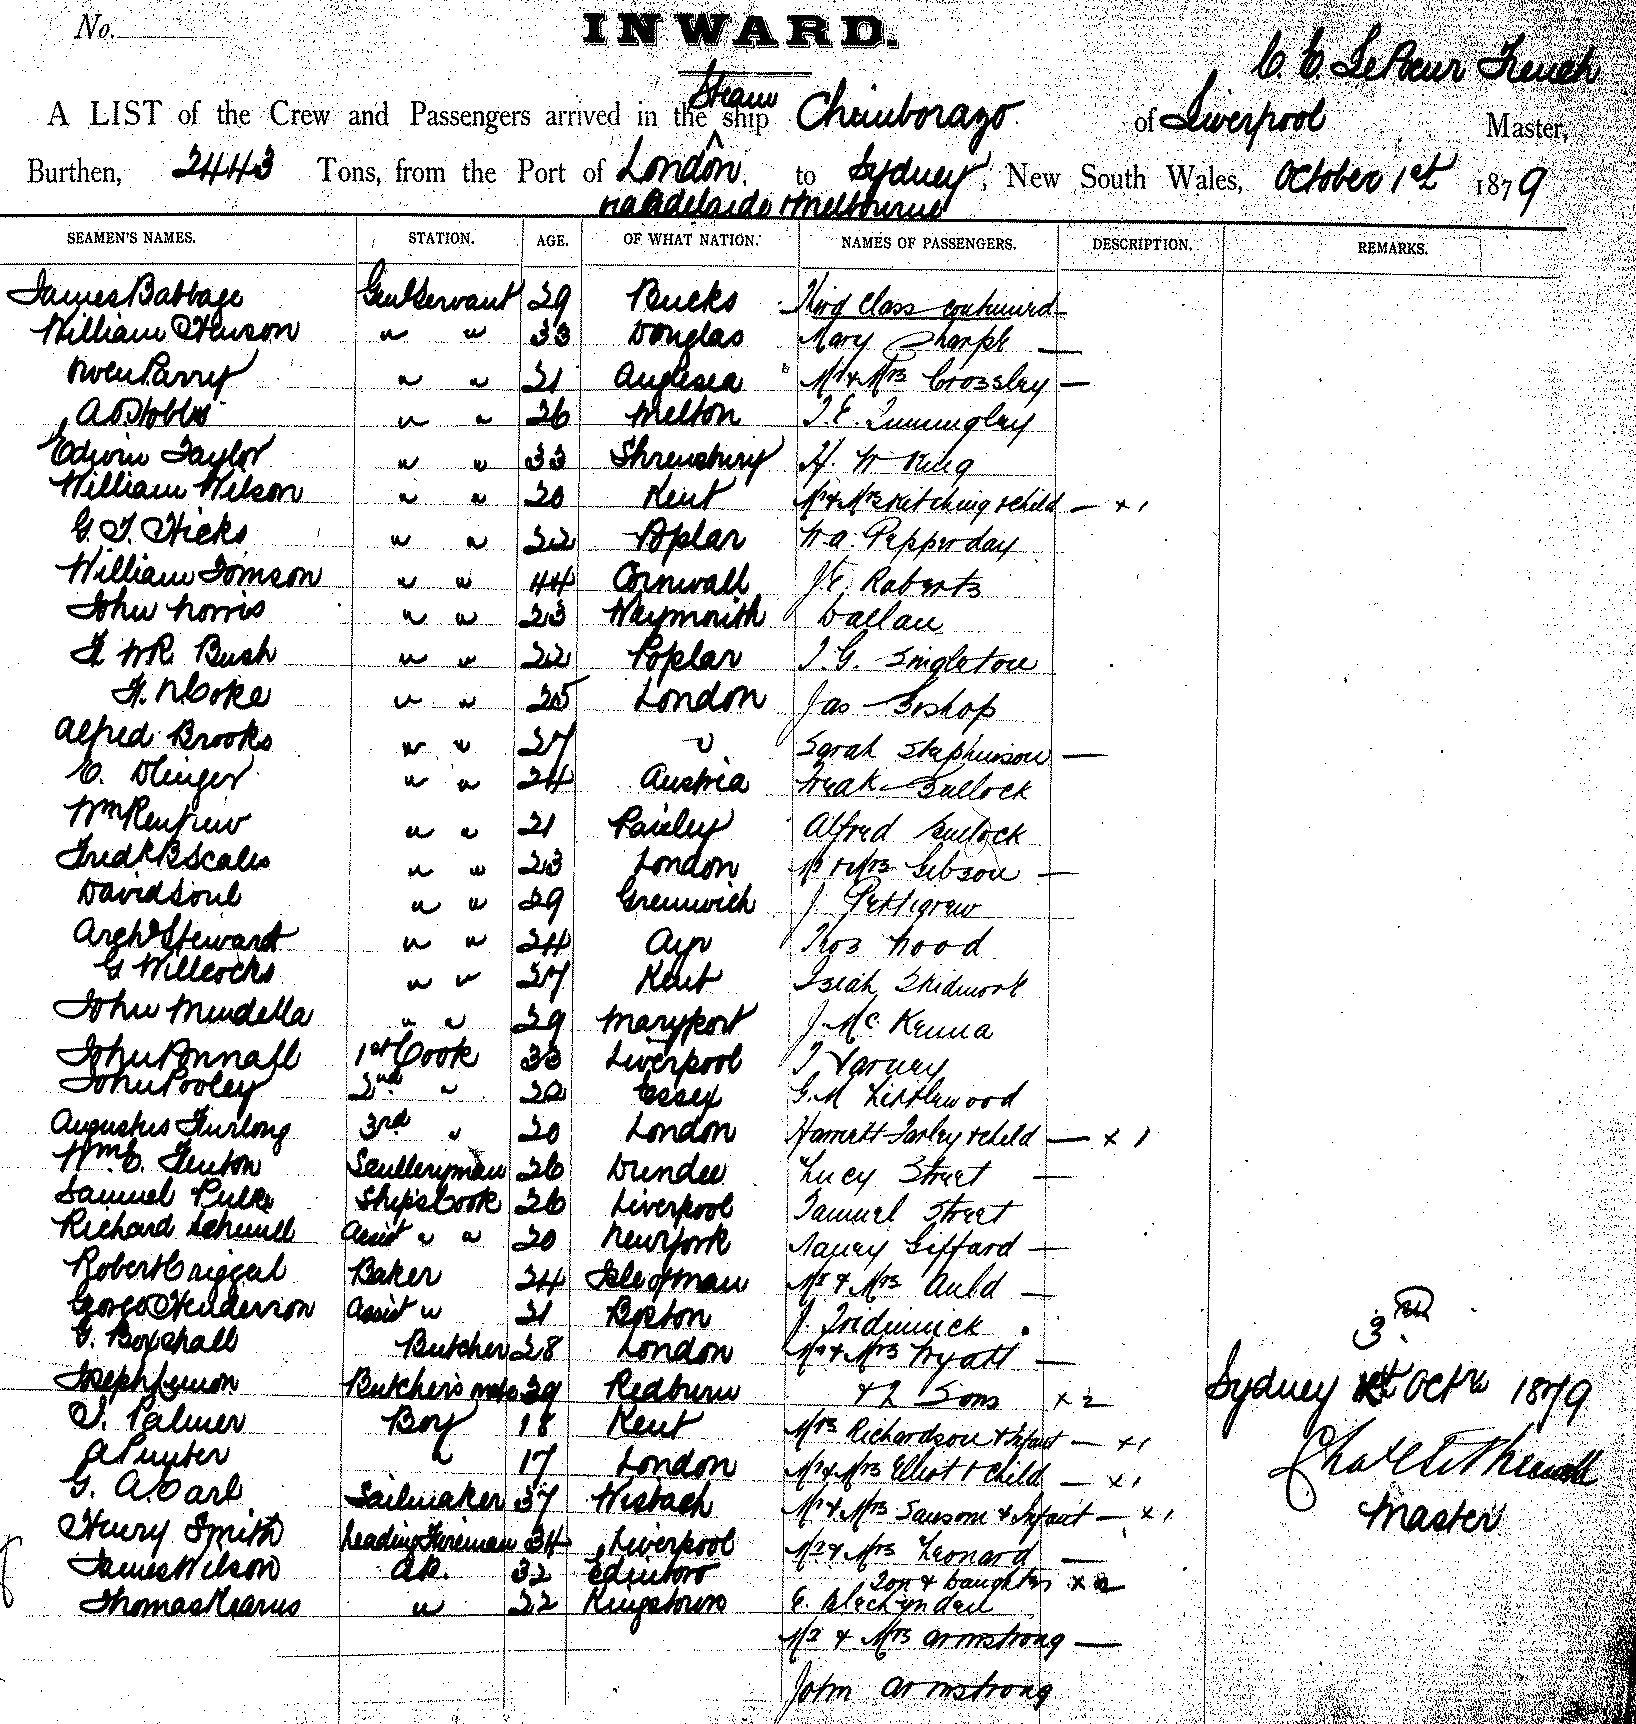 No.
INWARD.
C. C. Le Poeur Trench
Steam
A LIST of the Crew and Passengers arrived in the ship Chimborazo of Liverpool Master,
Burthen, 2443 Tons, from the Port of London, to Sydney, New South Wales, October 1st 1879
via Adelaide & Melbourne
SEAMEN'S NAMES. STATION. AGE. OF WHAT NATION. NAMES OF PASSENGERS. DESCRIPTION. REMARKS.
James Babbage Genl Servant 29 Bucks Third Class continued
William Henson " " 33 Douglas Mary Sharple —
Owen Parry " " 21 Anglesea Mr & Mrs Crossley —
A Stobbs " " 26 Melton T. E. Tunningley
Edwin Taylor " " 33 Shrewsbury H. W King
William Wilson " " 20 Kent Mr & Mrs Kitching & child — x 1
G. T. Hicks " " 22 Poplar Wa. Pepperday
William Tomson " " 44 Cornwall J. E. Roberts
John Norris " " 23 Weymouth Callan
F WR Bush " " 22 Poplar T. G. Singleton
F. N Coke " " 25 London Jas Boshop
Alfred Brooks " " 27 " Sarah Stephenson —
C. " " 24 Austria Bullock
Wm Renfrew " " 21 Paisley Alfred Bullock
Fredk B Scales " " 23 London Mr & Mrs Gibson —
David Soul " " 29 Greenwich J. Pettigrew
Archd Stewart " " 24 Ayr Thos Wood
G Willcocks " " 27 Kent Isiah Skidmore
John Mendella " " 29 Maryport J. Mc Kenna
John Ponnall 1st Cook 33 Liverpool T Varney
John Pooley 2nd " 22 Essex G. M Littlewood
Augustus Furlong 3rd " 20 London Harriett Farley & child — x 1
Wm C. Fenton Sculleryman 26 Dundee Lucy Street —
Samuel Pulke Ship's Cook 26 Liverpool Samuel Street
Richard Assist " " 20 New York Nancy Giffard —
Robert Criggal Baker 24 Isle of Man Mr & Mrs Auld —
George Henderson Assist " 21 Boston J. Tridinnick
G. Boxshall Butcher 28 London Mr & Mrs Wyatt —
Joseph Lemon Butcher's mate 29 Redburn & 2 Sons x 2
T. Palmer Boy 18 Kent Mrs Richardson & Infant — x 1
A Punter " 17 London Mr & Mrs Elliot & Child — x 1
G. A. Carl Sailmaker 37 Wisbach Mr & Mrs Sansom & Infant — x 1
Henry Smith Leading Fireman 34 Liverpool Mr & Mrs Leonard —
James Wilson AB. 32 Edinboro Son & Daughter x 2
Thomas Kearns " 22 Kingstown E. Blechynden
Mr & Mrs Armstrong —
John Armstrong
3rd
Sydney 1st Octr 1879
Master